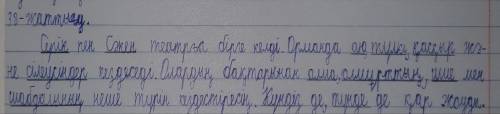 38-жаттығу.
Серік пен Сәкен театрға бірге келді. Орманда аю, түлкі, қасқыр жә-
не сілеусіндер кездеседі. Олардың бақтарынан алма, алмұрттың, шие мен
шабдалының неше түрін кездестіресің. Күндіз де, түнде де қар жауды.